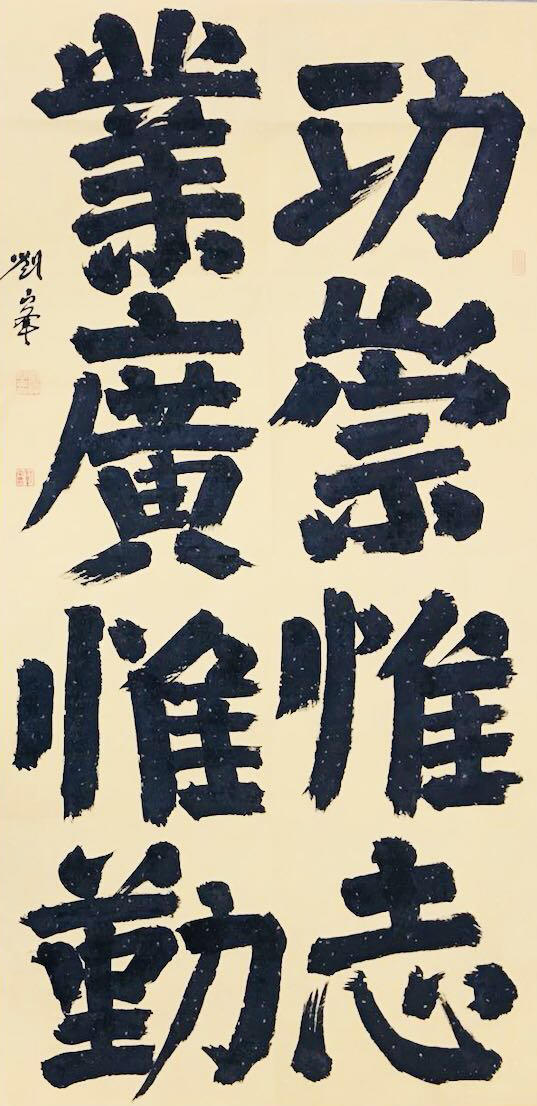 功崇惟志
業廣惟勤
劉峯